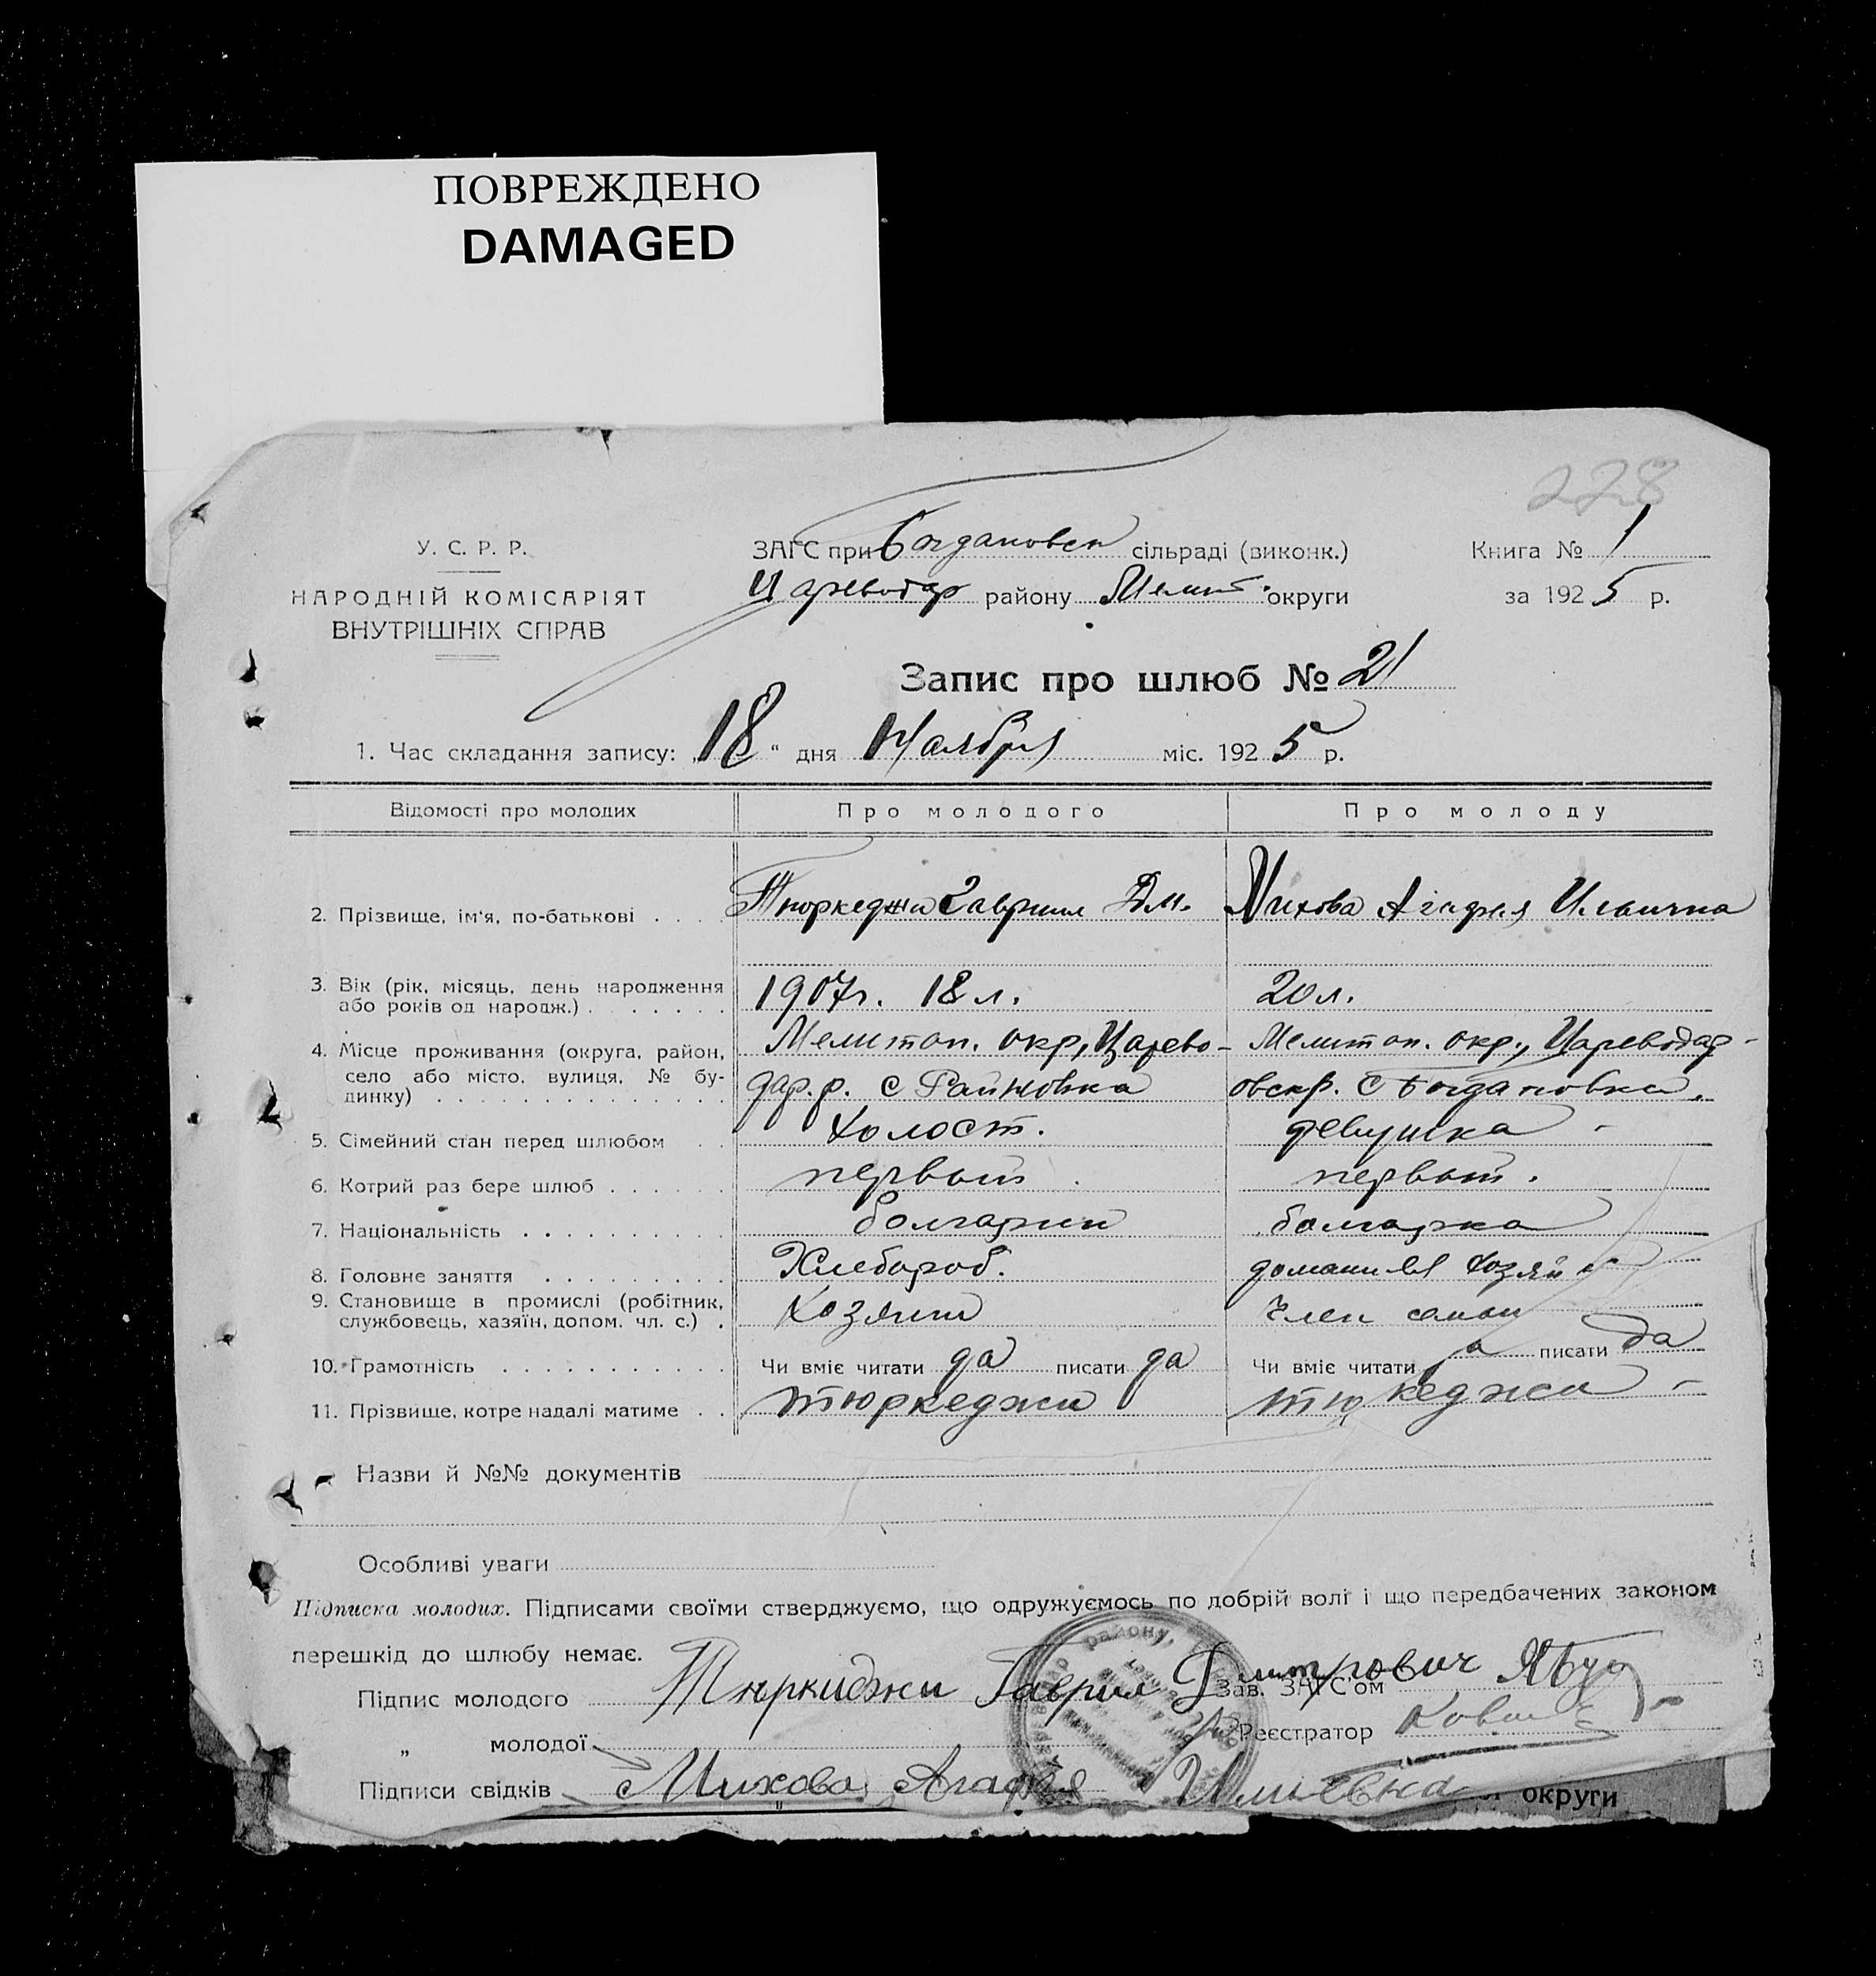 ПОВРЕЖДЕНО
DAMAGED
228
У. С. Р. Р.
НАРОДНІЙ КОМІСАРІЯТ
ВНУТРІШНІХ СПРАВ
ЗАГС при Богдановск сільраді (виконк.)
Цареводар району Мелит. округи
Книга № 1
за 1925 р.
Запис про шлюб № 21
1. Час складання запису: „18“ дня Ноября міс. 1925 р.
Відомості про молодих Про молодого Про молоду
2. Прізвище, ім'я, по-батькові . . . Тюркеджи Гавриил Дм. Михова Агафия Ильинична
3. Вік (рік, місяць, день народження
або років од народж.) . . . . . . 1907г. 18 л. 20 л.
4. Місце проживання (округа, район,
село або місто, вулиця, № бу-
динку) . . . . . . . . . . . . . .
Мелитоп. окр, Царево-
дар. р. с Райновка
Мелитоп. окр., Цареводар-
овск р. с Богдановка.
5. Сімейний стан перед шлюбом . . холост. девушка -
6. Котрий раз бере шлюб . . . . . . первый первый.
7. Національність . . . . . . . . . . болгарин болгарка
8. Головне заняття . . . . . . . . . Хлебороб. домашняя хозяйка
9. Становище в промислі (робітник,
службовець, хазяїн, допом. чл. с.) . Хозяин член семьи
10. Грамотність . . . . . . . . . . . Чи вміє читати да писати да Чи вміє читати да писати да
11. Прізвище, котре надалі матиме . . Тюркеджи Тюркеджи -
Назви й №№ документів
Особливі уваги
Підписка молодих. Підписами своїми стверджуємо, що одружуємось по добрій волі і що передбачених законом
перешкід до шлюбу немає.
Підпис молодого Тюркиджи Гаврил Дмитрович
Зав. ЗАГС'ом
„ молодої
Реєстратор
Підписи свідків Михова Агафья Ильевна
району,
округи